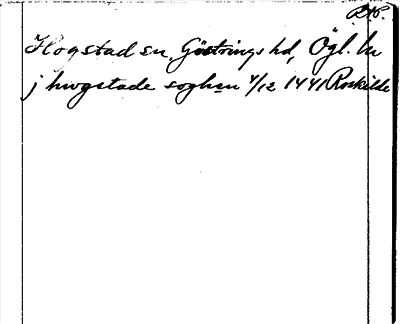 Hogstad sn, Göstrings hd, Ögl. 
j hwgstade soghen 4/12 1441 Roskilde